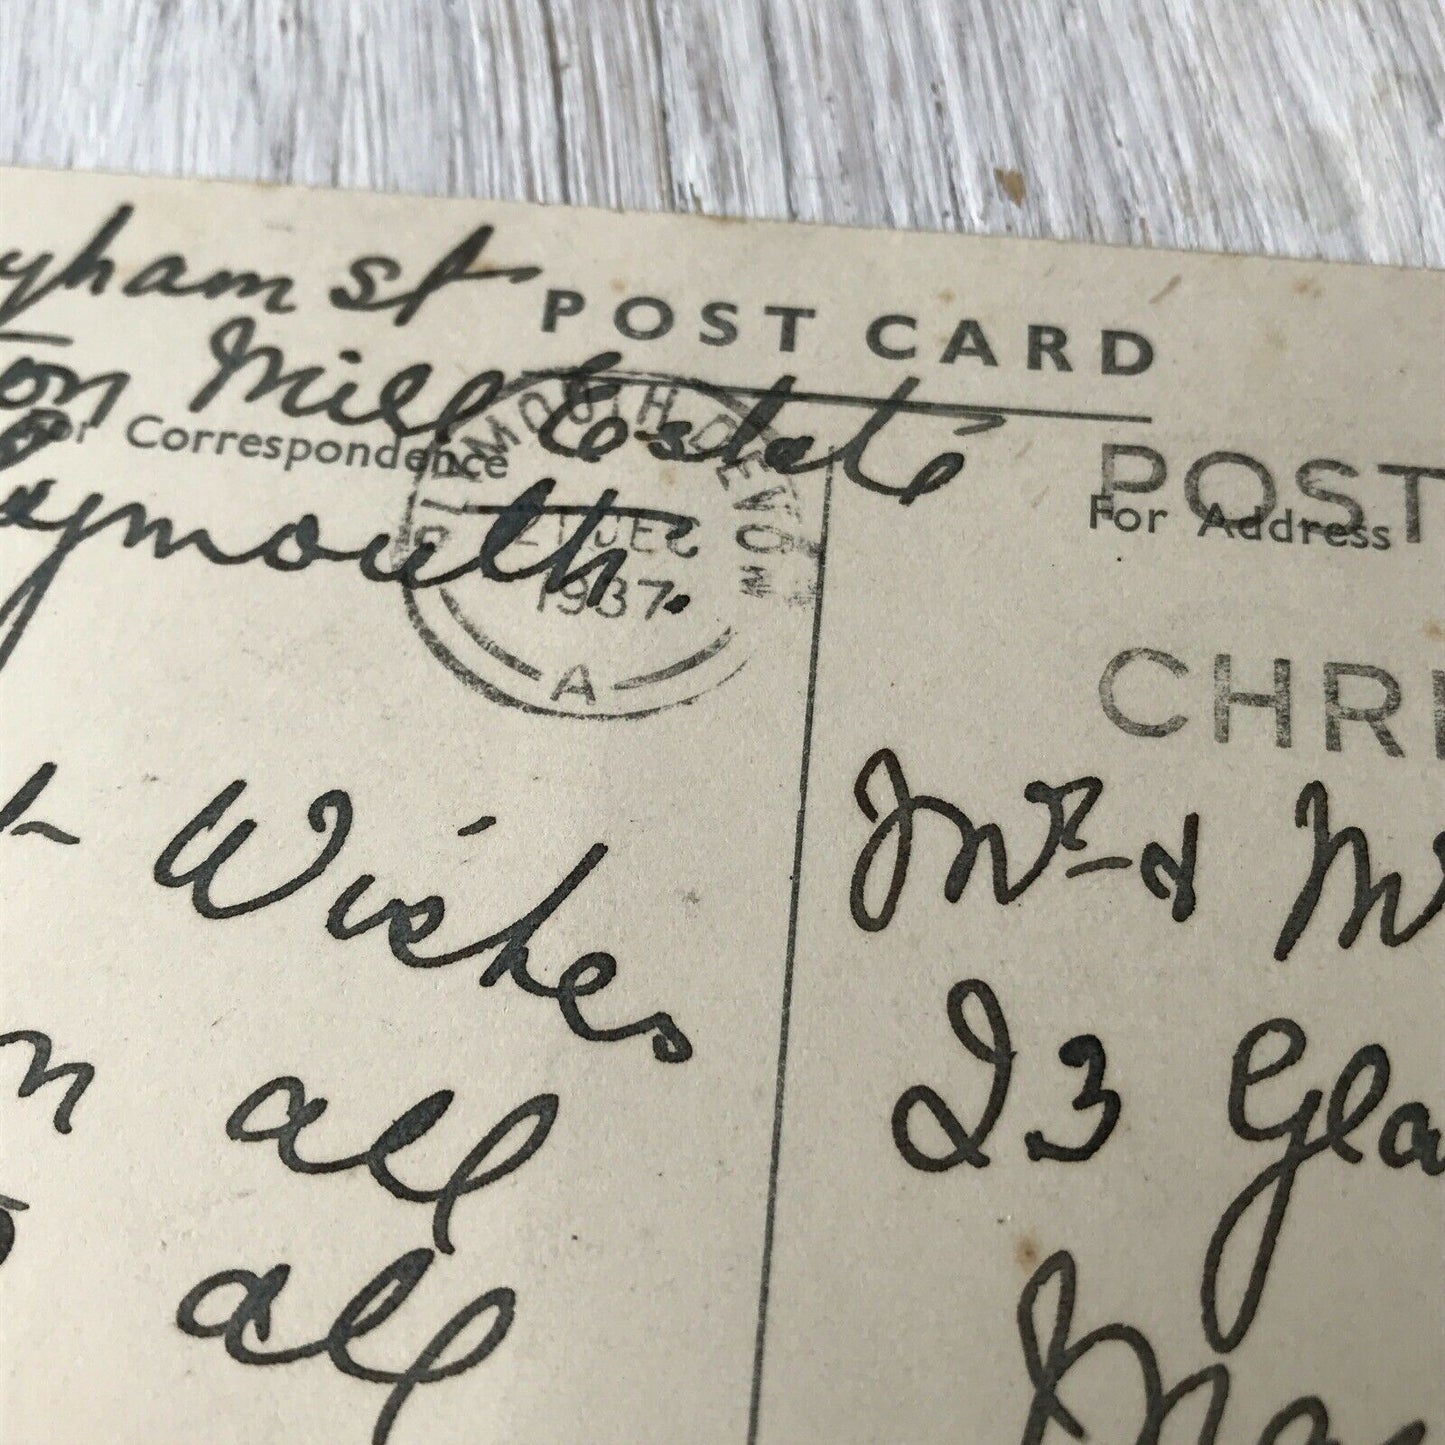 yham st
POST CARD
on Mill Estate
For Correspondence
ymouth.
PLYMOUTH DEVON
21 DEC
1937
A
POST
For Address
CHRI
Wishes
all
all
Mr & M
23 Gla